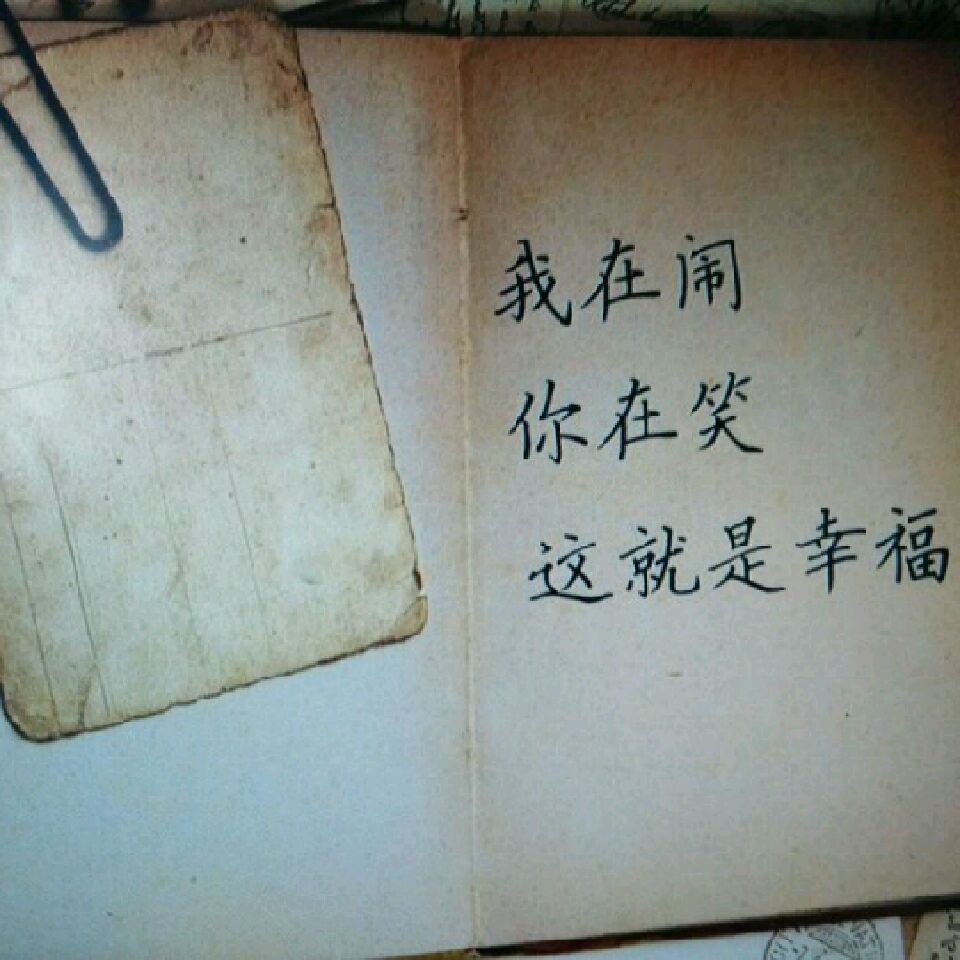 我在闹
你在笑
这就是幸福